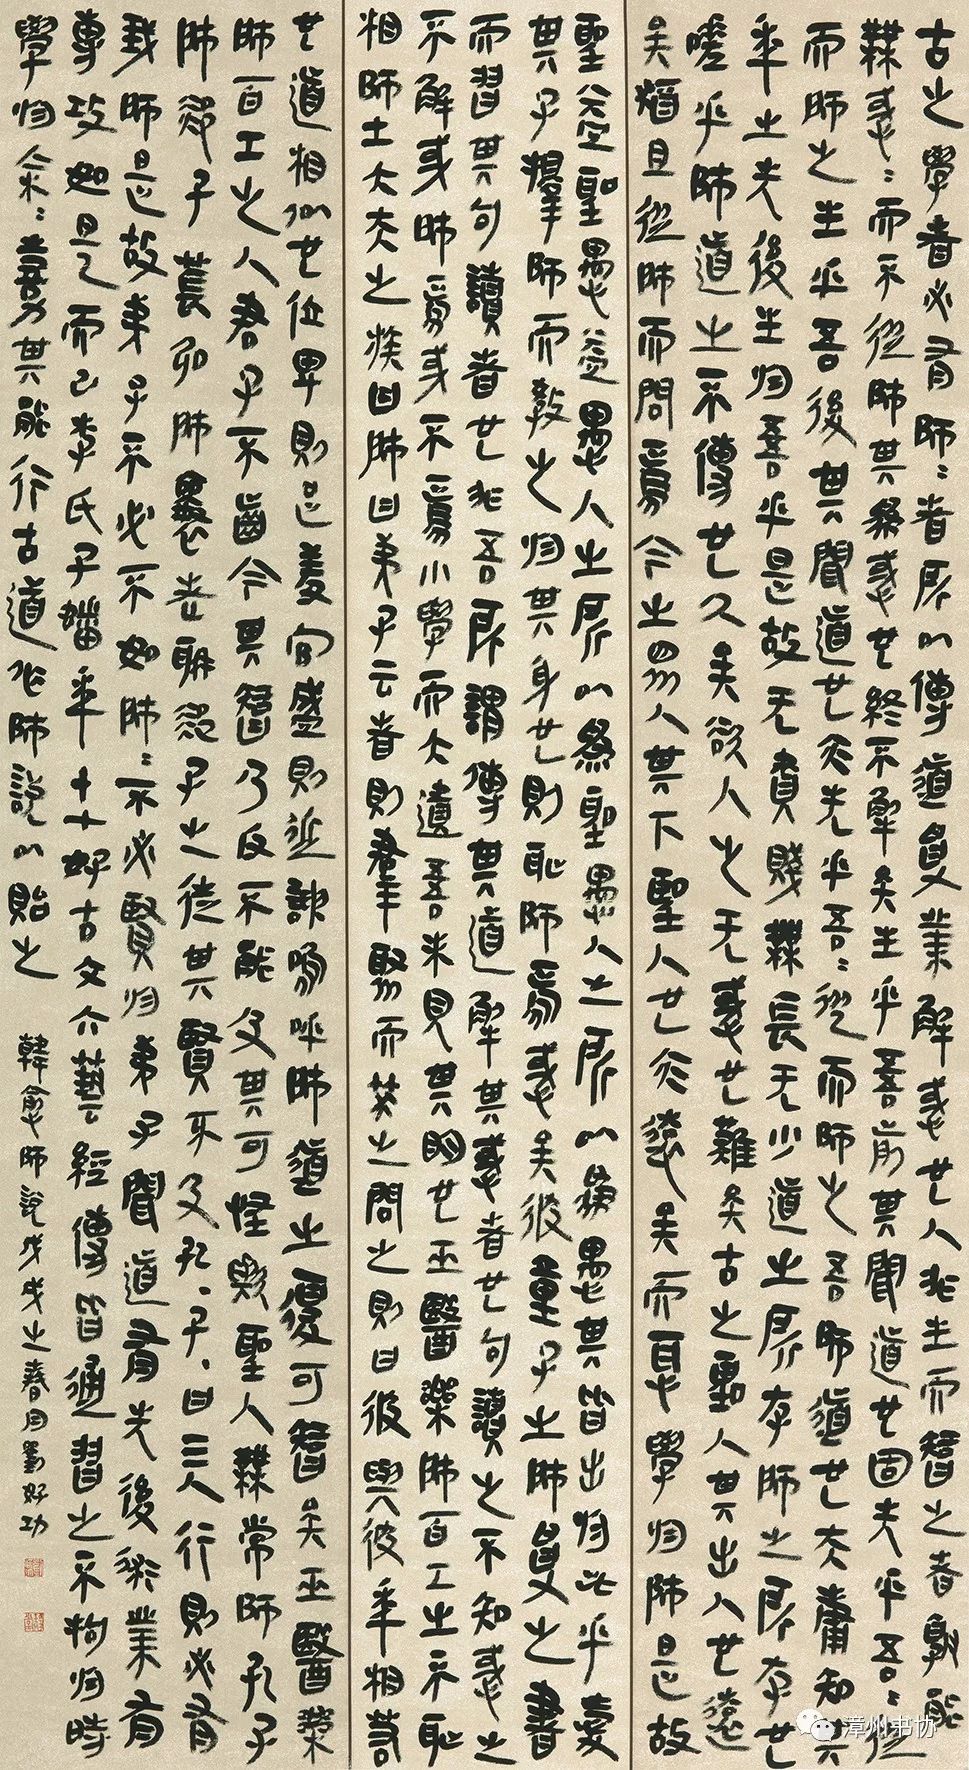 古之學者必有師=者所以傳道受業解惑也人非生而智之者孰能
無惑=而不從師其為惑也終不解矣生乎吾前其聞道也固先乎吾=從
而師之生乎吾後其聞道也亦先乎吾=從而師之吾師道也夫庸知其
年之先後生於吾乎是故无貴賤無長无少道之所存師之所存也
嗟乎師道之不傳也久矣欲人之无惑也難矣古之聖人其出人也遠
矣猶且從師而問焉今之眾人其下聖人也亦遠矣而恥學於師是故
聖益聖愚益愚人之所以為聖愚人之所以為愚其皆出於此乎愛
其子擇師而教之於其身也則恥師焉惑矣彼童子之師受之書
而習其句讀者也非吾所謂傳其道解其惑者也句讀之不知惑之
不解或師焉或不焉小學而大遺吾未見其明也巫醫樂師百工之不恥
相師士大夫之族曰師曰弟子云者則群聚而笑之問之則曰彼與彼年相若
也道相似也位卑則足羞官盛則近諛嗚呼師道之復可智矣巫醫樂
師百工之人君子不齒今其智乃反不能及其可怪歟聖人無常師孔子
師郯子萇弘師襄老聃郯子之徒其賢不及孔=子=曰三人行則必有
我師是故弟子不必不如師=不必賢於弟子聞道有先後術業有
專攻如是而已李氏子蟠年十七好古文六藝經傳皆通習之不拘於時
學於余=嘉其能行古道作師說以貽之
韓愈師說戊戌之春月 好功
漳州书协